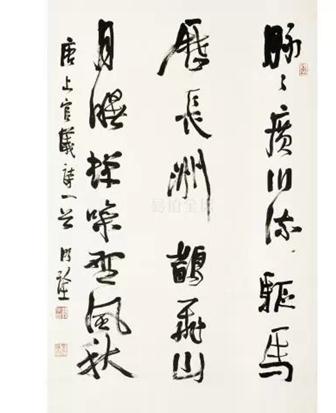 脈〻廣川流驅馬
歷長洲鵲飛山
月曙蟬噪野風秋
唐上官儀詩一首
易拍全球